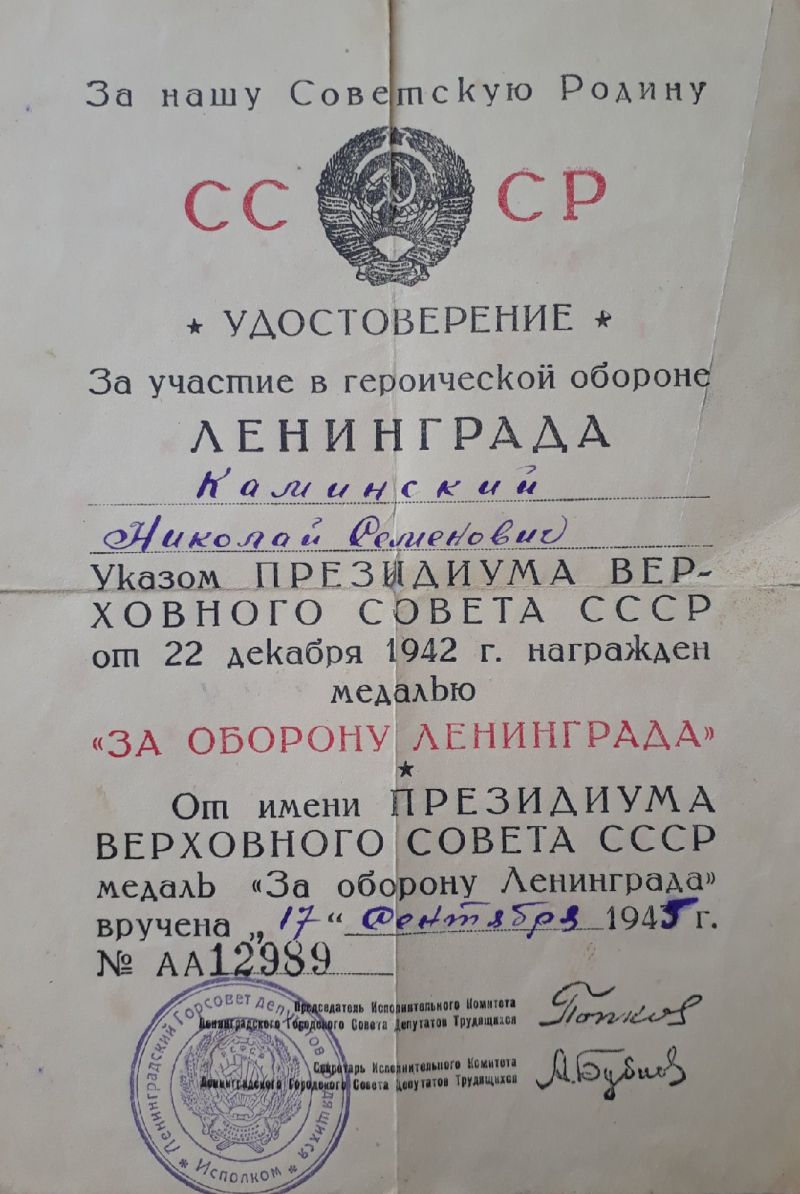 За нашу Советскую Родину
СССР
★ УДОСТОВЕРЕНИЕ ★
За участие в героической обороне
ЛЕНИНГРАДА
Каминский
Николай Семенович
Указом ПРЕЗИДИУМА ВЕР-
ХОВНОГО СОВЕТА СССР
от 22 декабря 1942 г. награжден
медалью
«ЗА ОБОРОНУ ЛЕНИНГРАДА»
★
От имени ПРЕЗИДИУМА
ВЕРХОВНОГО СОВЕТА СССР
медаль «За оборону Ленинграда»
вручена „17“ Сентября 1945 г.
№ АА12989
Председатель Исполнительного Комитета
Ленинградского Городского Совета Депутатов Трудящихся
Попков
Секретарь Исполнительного Комитета
Ленинградского Городского Совета Депутатов Трудящихся
А. Бубнов
Ленинградский Горсовет депутатов трудящихся
* Исполком *